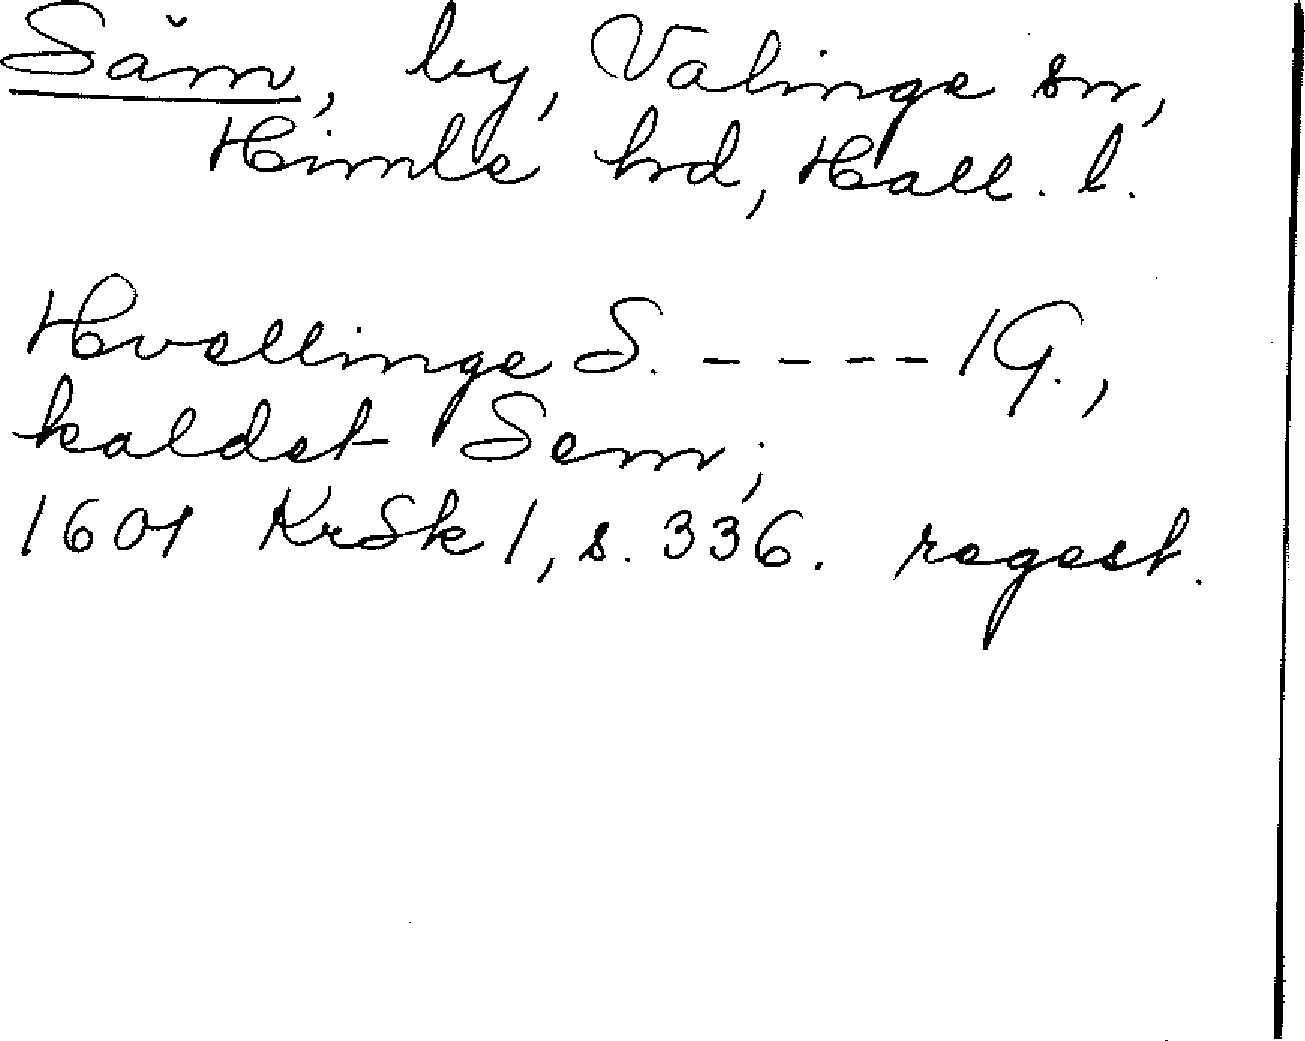 Säm, by, Valinge sn,
Himle hd, Hall. l.
Hvallinge S. - - - - - 1 G.,
kaldet Sem;
1601 KrSk 1, s. 336. regest.